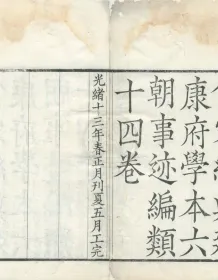 康府學本六
朝事迹編類
十四卷
光緒十三年春正月刊夏五月工完